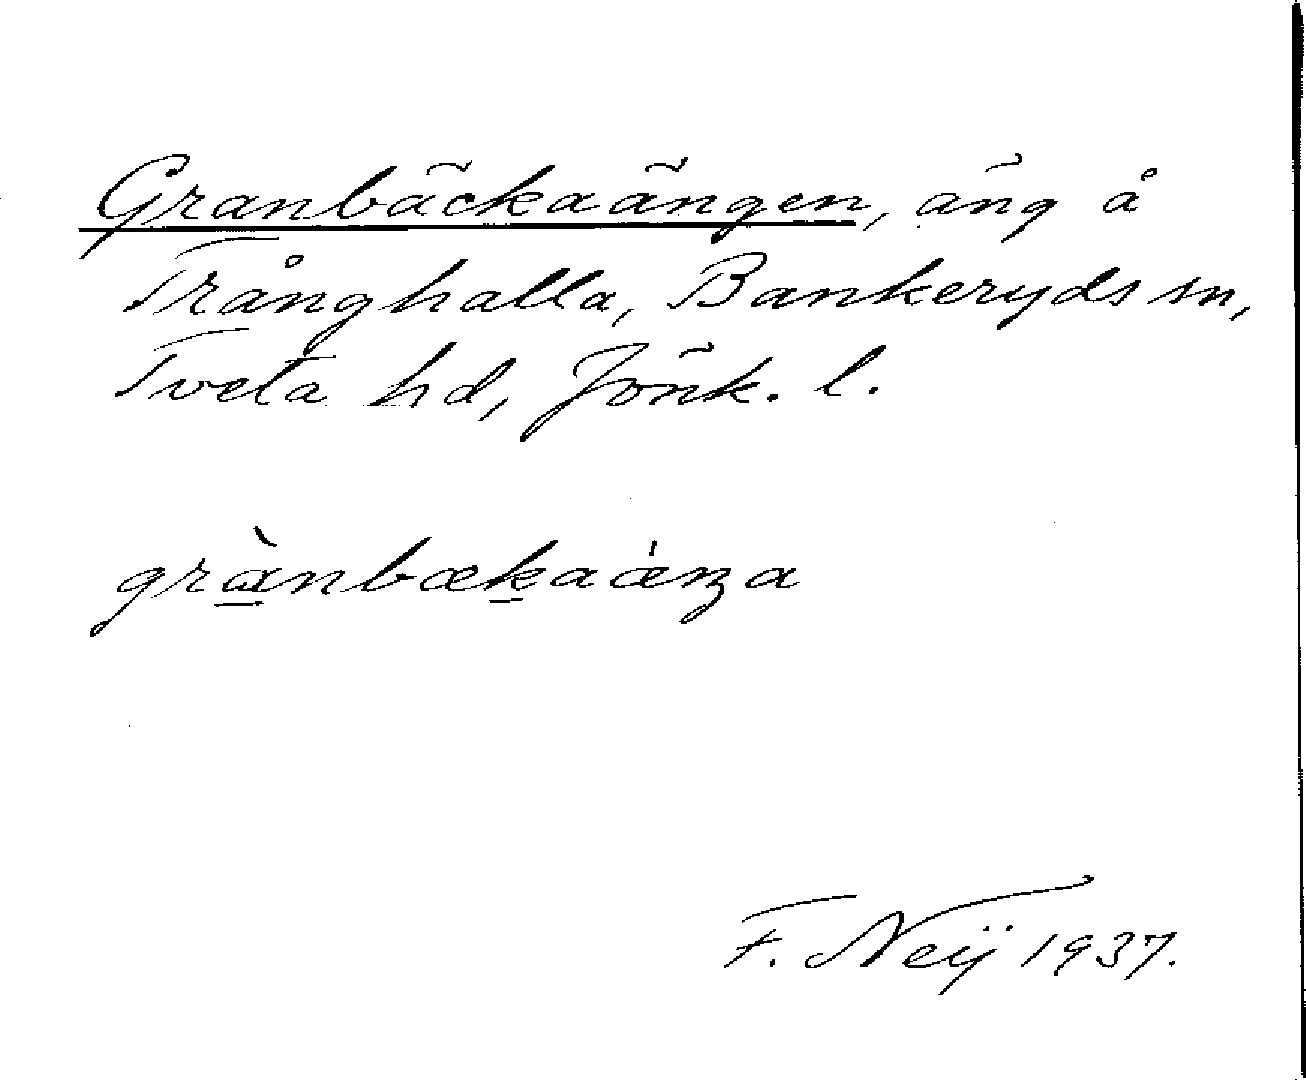 Granbäckaängen, äng å
Trånghalla, Bankeryds sn,
Tveta hd, Jönk. l.
grànbækaǽŋa
F. Neÿ 1937.